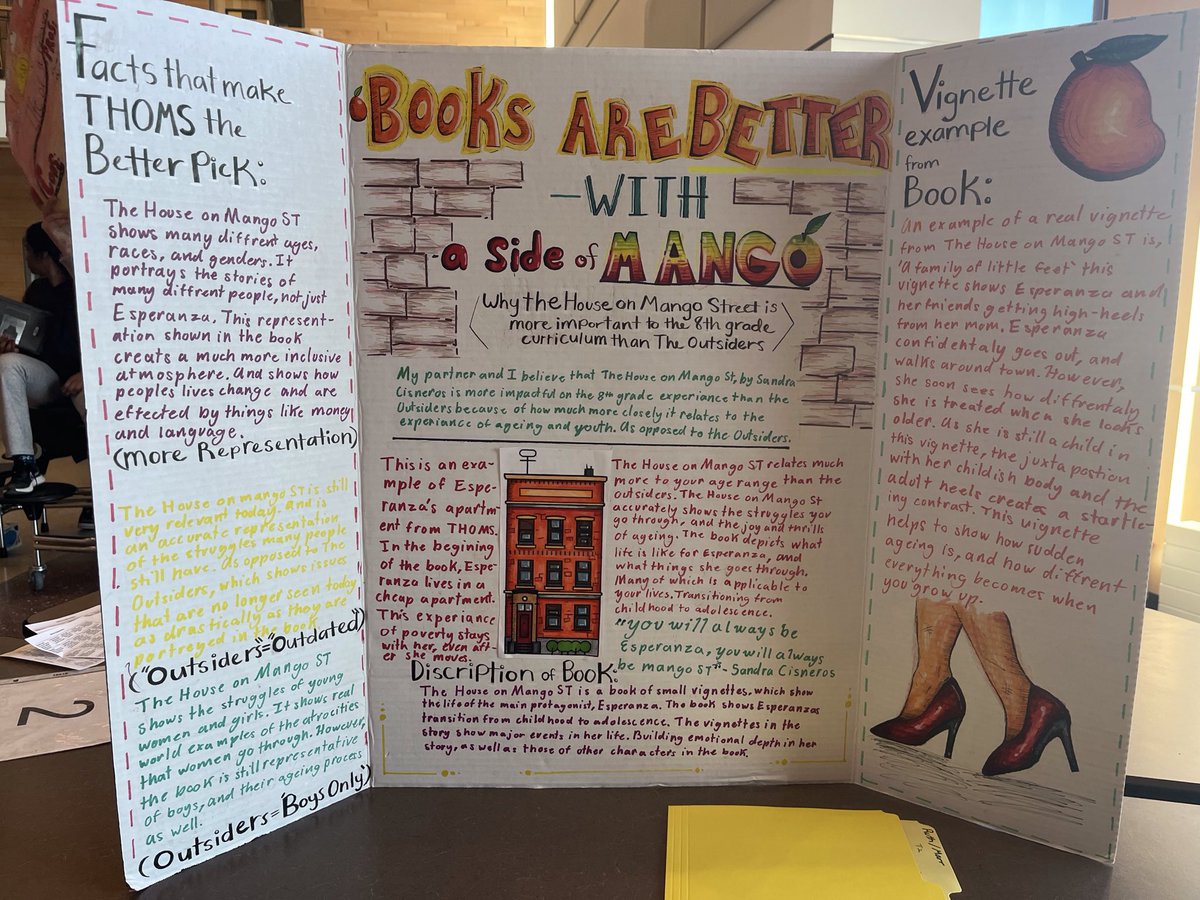 Facts that make
THOMS the
Better Pick:
The House on Mango ST
shows many diffrent ages,
races, and genders. It
portrays the stories of
many diffrent people, not just
Esperanza. This represent-
ation shown in the book
creats a much more inclusive
atmosphere. And shows how
peoples lives change and are
effected by things like money
and language.
(more Representation)
The House on mango ST is still
very relevant today. and is
an accurate representation
of the struggles many people
still have. As opposed to The
Outsiders, which shows issues
that are no longer seen today
as drastically as they are
portreyed in the book.
("Outsiders"="Outdated")
The House on Mango ST
shows the struggles of young
women and girls. It shows real
world examples of the atrocities
that women go through. However,
the book is still representative
of boys, and their ageing process
as well.
(Outsiders="Boys Only")
BOOKS ARE BETTER
-WITH
a side of MANGO
Why the House on Mango Street is
more important to the 8th grade
curriculum than The Outsiders
My partner and I believe that The House on Mango St, by Sandra
Cisneros is more impactful on the 8th grade experience than the
Outsiders because of how much more closely it relates to the
experiance of ageing and youth. As opposed to the Outsiders.
This is an exa-
mple of Espe-
ranza's apartm-
ent from THOMS.
In the begining
of the book, Espe-
ranza lives in a
cheap apartment.
This experiance
of poverty stays
with her, even aft-
er she moves.
The House on Mango ST relates much
more to your age range than the
outsiders. The House on Mango St
accurately shows the struggles you
go through, and the joy and thrills
of ageing. The book depicts what
life is like for Esperanza, and
what things she goes through.
Many of which is applicable to
your lives. Transitioning from
childhood to adolescence.
"you will always be
Esperanza, you will always
be mango ST"- Sandra Cisneros
Discription of Book:
The House on Mango ST is a book of small vignettes, which show
the life of the main protagonist, Esperanza. The book shows Esperanzas
transition from childhood to adolescence. The vignettes in the
story show major events in her life. Building emotional depth in her
story, as well as those of other characters in the book.
Vignette
example
from
Book:
An example of a real vignette
from The House on Mango ST is,
'A family of little feet' this
vignette shows Esperanza and
her friends getting high-heels
from her mom. Esperanza
confidentaly goes out, and
walks around town. However,
she soon sees how diffrentaly
she is treated when she looks
older. As she is still a child in
this vignette, the juxta postion
with her childish body and the
adult heels creats a startle-
ing contrast. This vignette
helps to show how sudden
ageing is, and how diffrent
everything becomes when
you grow up.
2